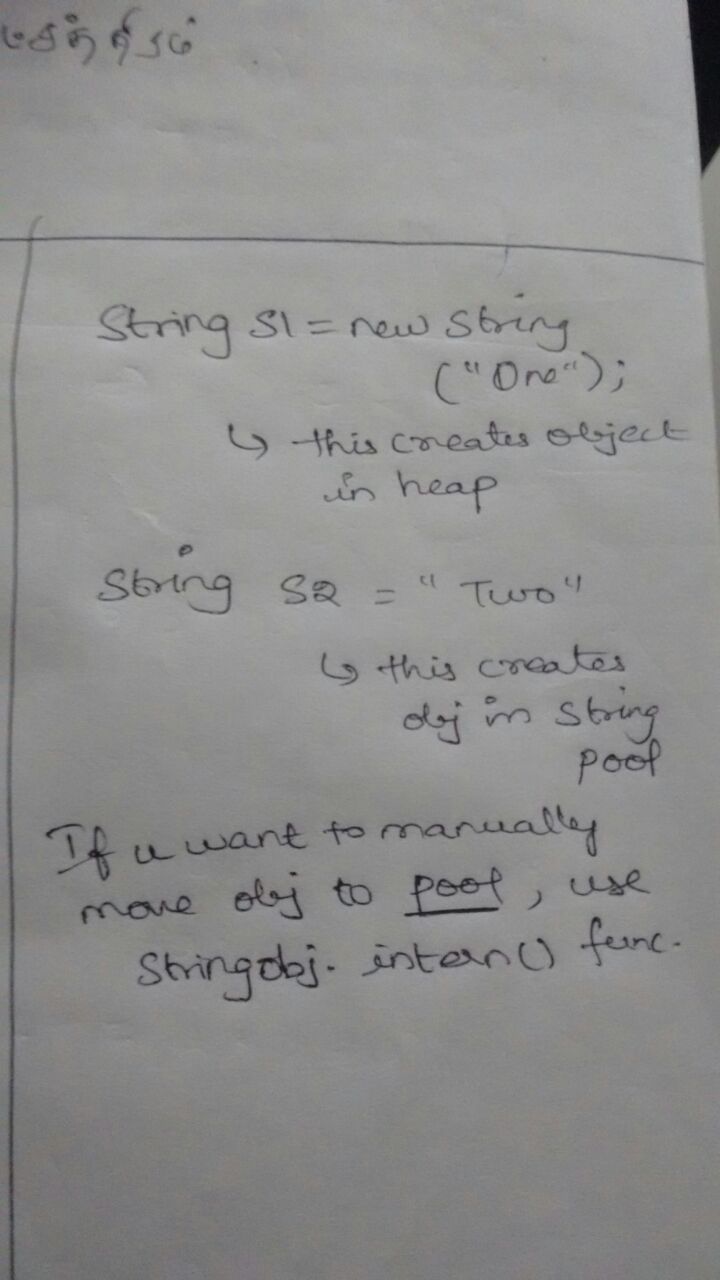 String S1 = new String
("One");
↳ this creates object
in heap
String S2 = "Two"
↳ this creates
obj in String
pool
If u want to manually
move obj to pool, use
Stringobj. intern() func.